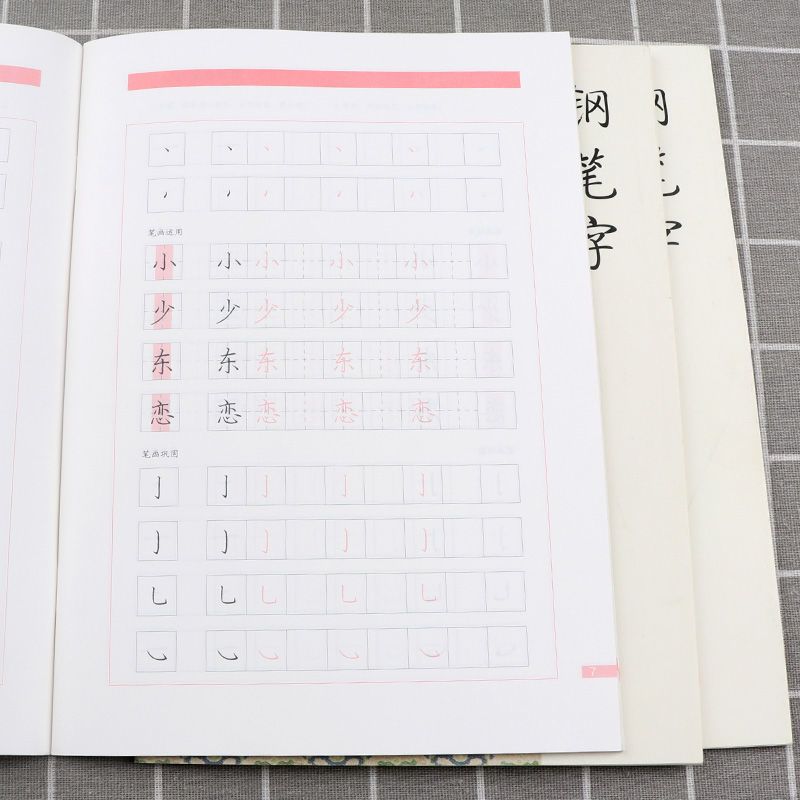 丶 丶 丶 丶 丶
丿 丿 丿 丿 丿
笔画运用
小 小 小 小 小
少 少 少 少 少
东 东 东 东 东
恋 恋 恋 恋 恋
笔画巩固
亅 亅 亅 亅 亅
亅 亅 亅 亅 亅
乚 乚 乚 乚 乚
㇃ ㇃ ㇃ ㇃ ㇃
7
钢笔字
钢笔字